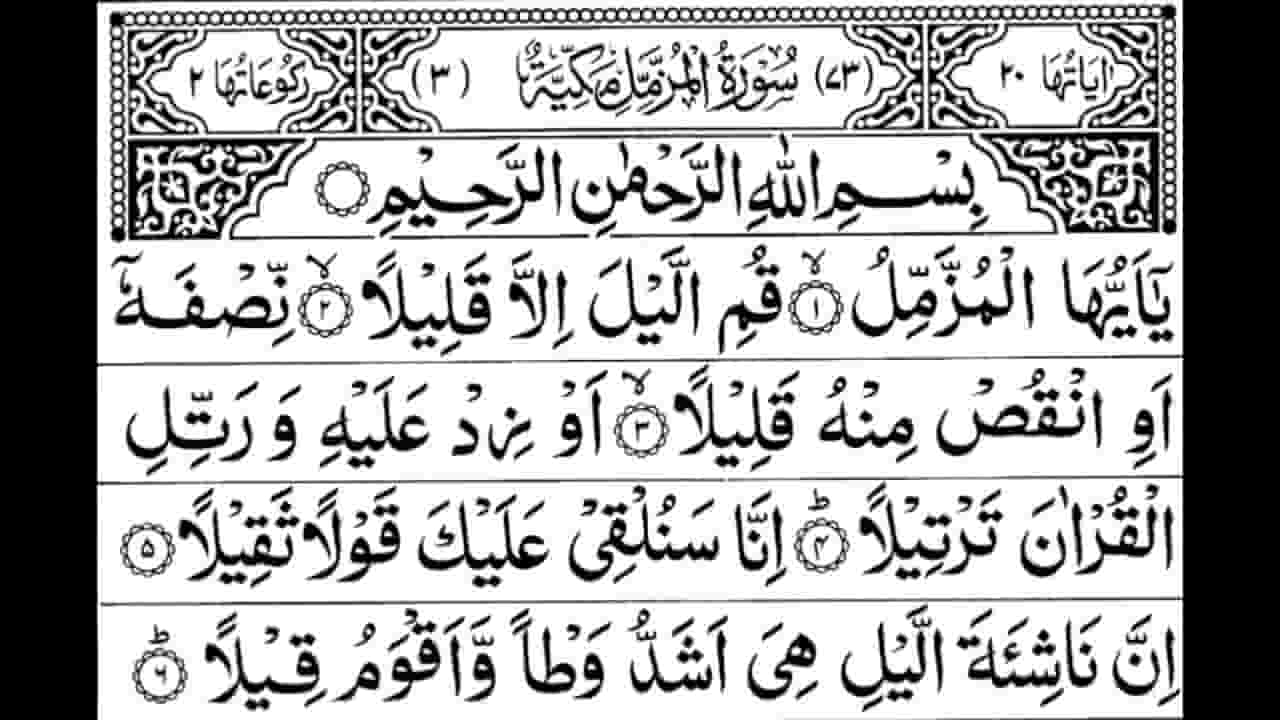 اٰيَاتُهَا ٢٠ (٧٣) سُوْرَةُ الْمُزَّمِّلِ مَكِّيَّةٌ (٣) رُكُوْعَاتُهَا ٢
بِسْمِ اللّٰهِ الرَّحْمٰنِ الرَّحِيْمِ
يٰۤاَيُّهَا الْمُزَّمِّلُ ۙ﴿۱﴾ قُمِ الَّيْلَ اِلَّا قَلِيْلًا ۙ﴿۲﴾ نِّصْفَهٗۤ
اَوِ انْقُصْ مِنْهُ قَلِيْلًا ۙ﴿۳﴾ اَوْ زِدْ عَلَيْهِ وَ رَتِّلِ
الْقُرْاٰنَ تَرْتِيْلًا ؕ﴿۴﴾ اِنَّا سَنُلْقِیْ عَلَيْكَ قَوْلًا ثَقِيْلًا ﴿۵﴾
اِنَّ نَاشِئَةَ الَّيْلِ هِیَ اَشَدُّ وَطْاً وَّاَقْوَمُ قِيْلًا ؕ﴿۶﴾